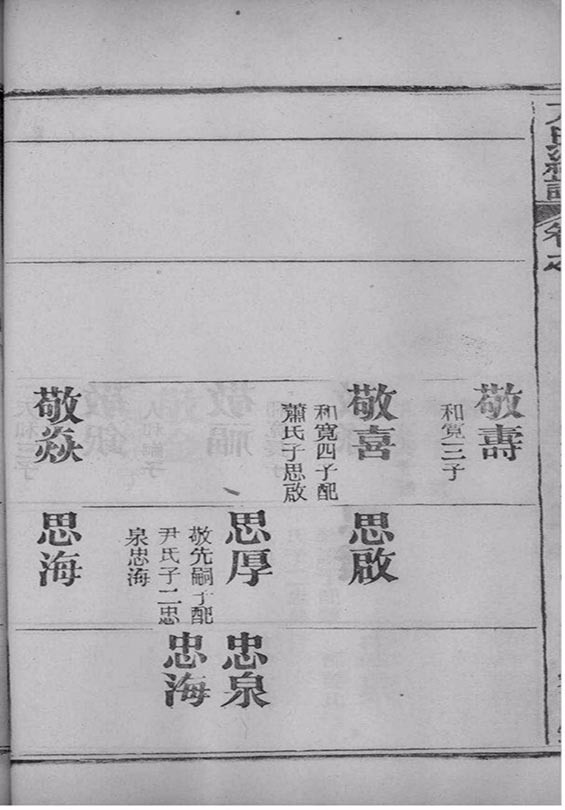 敬壽
和寬三子
敬喜
和寬四子配
蕭氏子思啟
敬焱
思啟
思厚
敬先嗣子配
尹氏子二忠
泉忠海
思海
忠泉
忠海